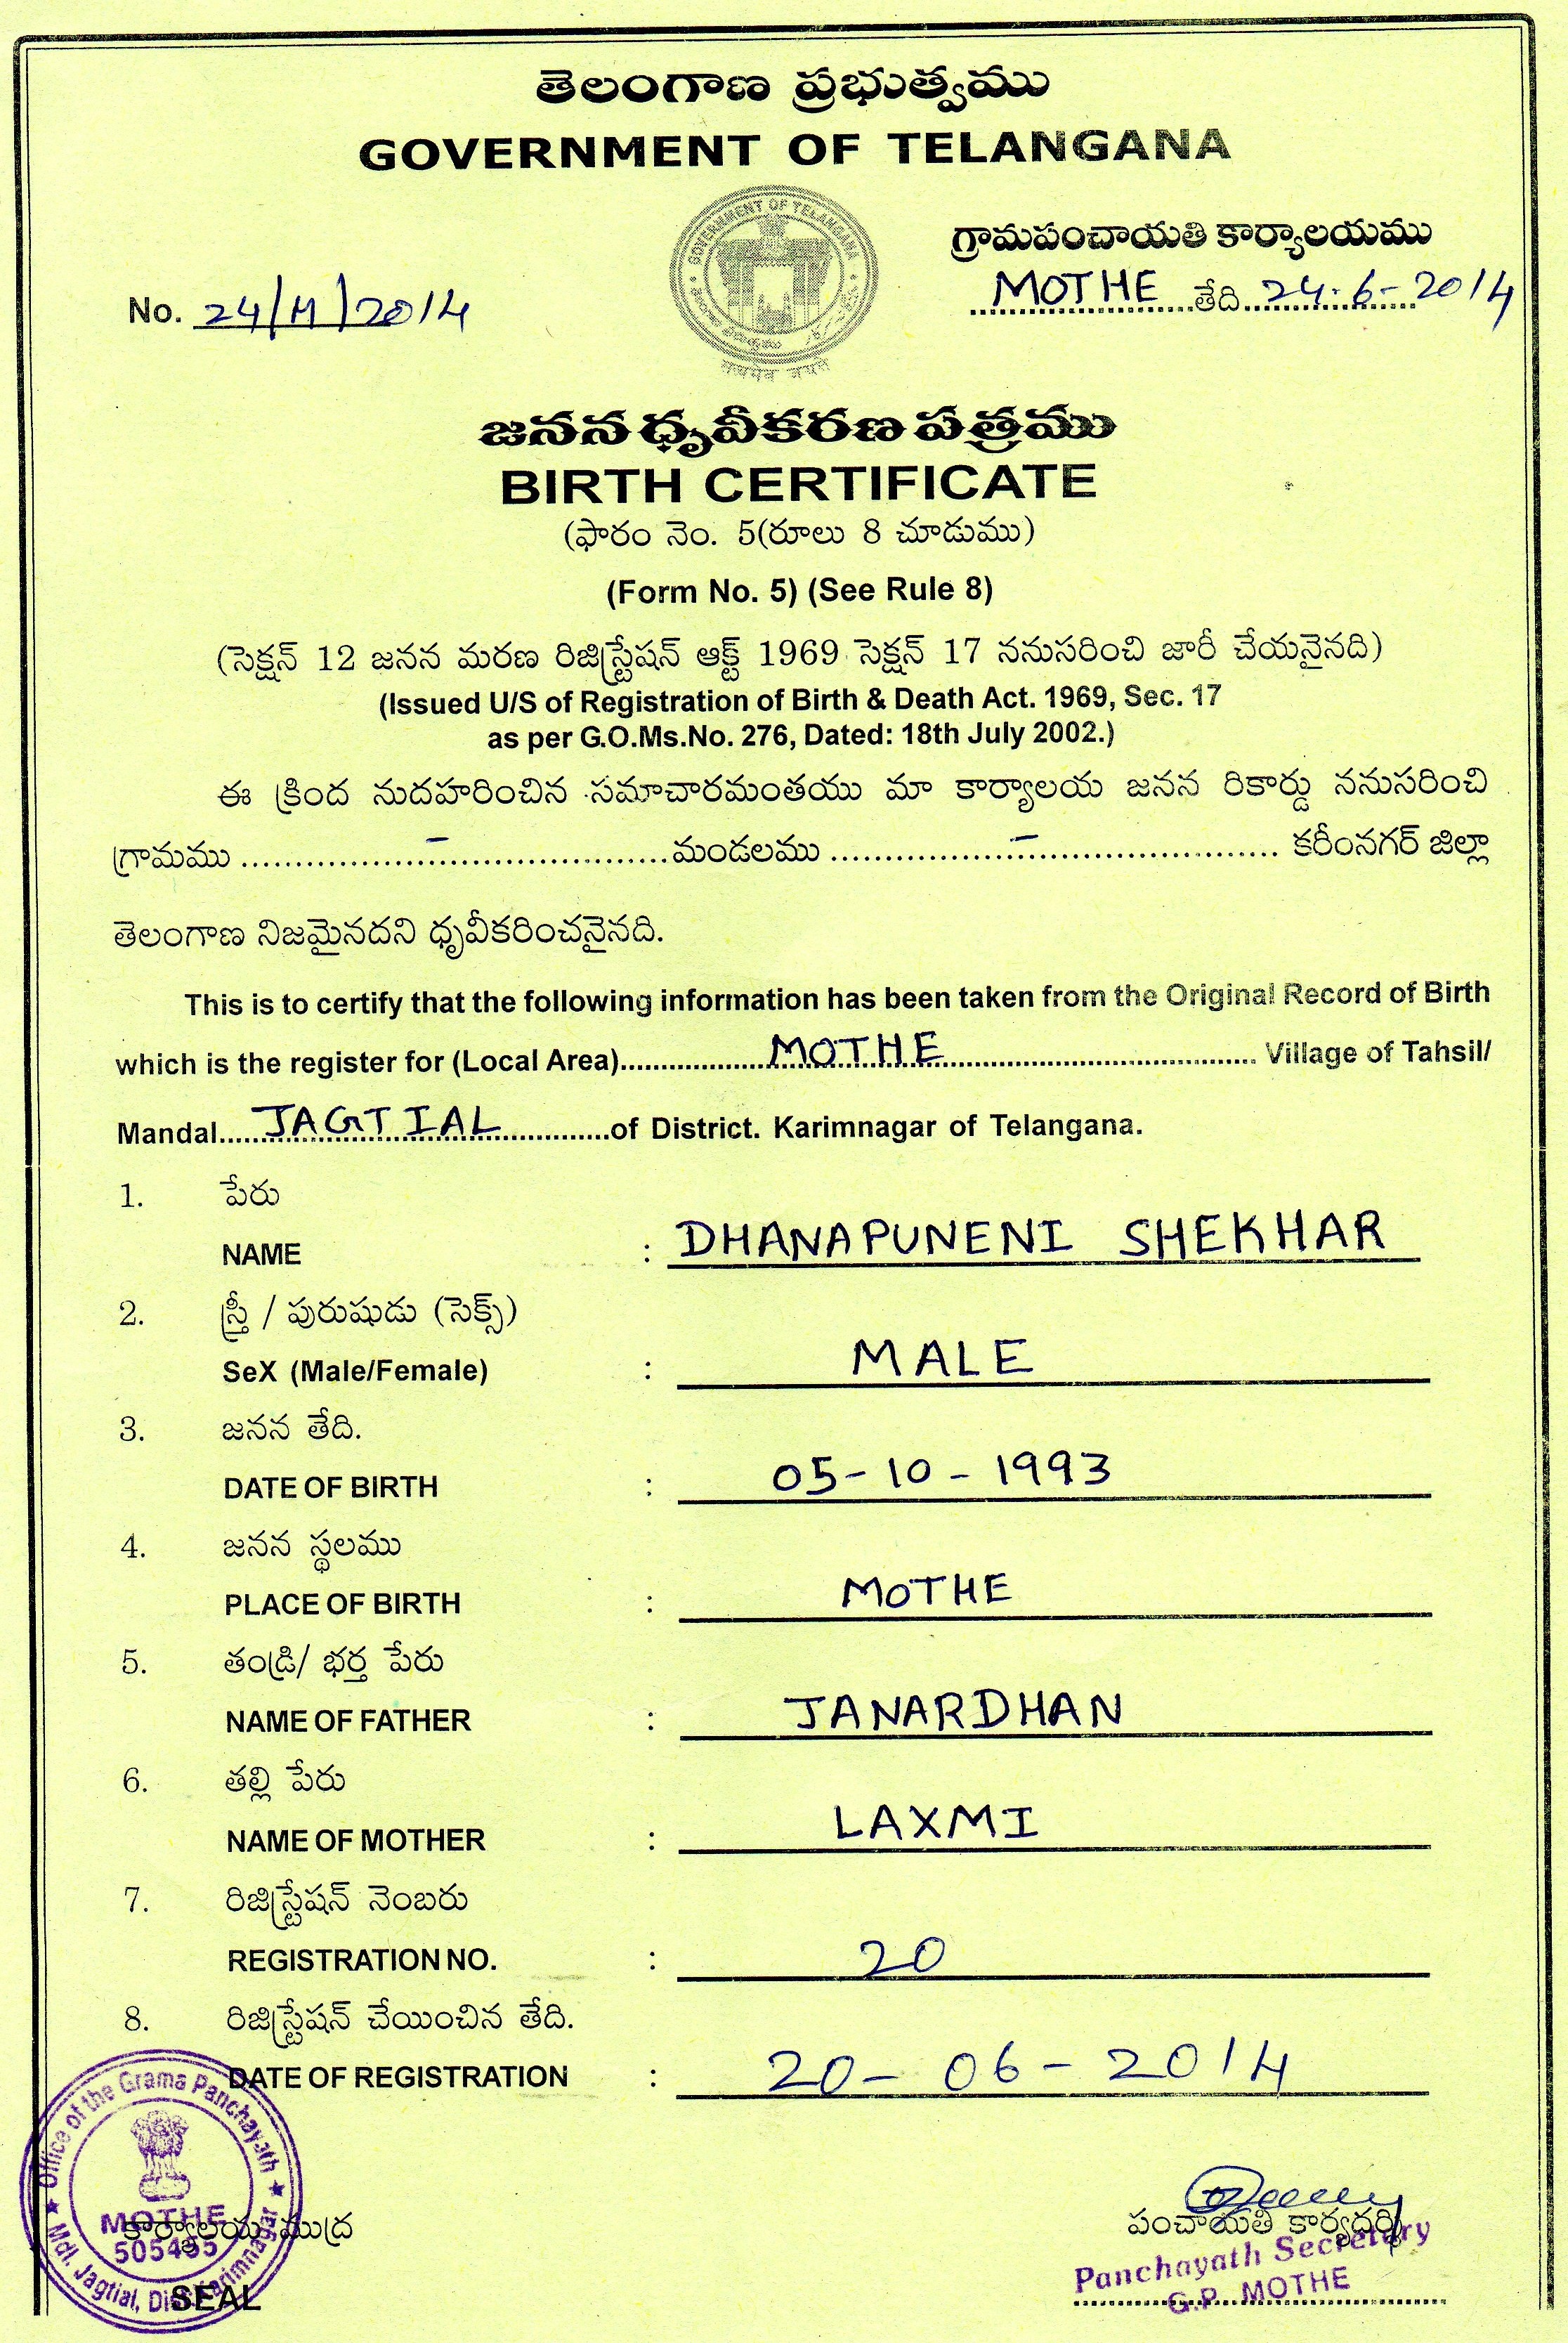 తెలంగాణ ప్రభుత్వము
GOVERNMENT OF TELANGANA
GOVERNMENT OF TELANGANA
सत्यमेव जयते
గ్రామపంచాయతి కార్యాలయము
No. 24/M/2014
MOTHE తేది 24-6-2014
జనన ధృవీకరణ పత్రము
BIRTH CERTIFICATE
(ఫారం నెం. 5(రూలు 8 చూడుము)
(Form No. 5) (See Rule 8)
(సెక్షన్ 12 జనన మరణ రిజిస్ట్రేషన్ ఆక్ట్ 1969 సెక్షన్ 17 ననుసరించి జారీ చేయనైనది)
(Issued U/S of Registration of Birth & Death Act. 1969, Sec. 17
as per G.O.Ms.No. 276, Dated: 18th July 2002.)
ఈ క్రింద నుదహరించిన సమాచారమంతయు మా కార్యాలయ జనన రికార్డు ననుసరించి
గ్రామము ........ – ........ మండలము ........ – ........ కరీంనగర్ జిల్లా
తెలంగాణ నిజమైనదని ధృవీకరించనైనది.
This is to certify that the following information has been taken from the Original Record of Birth
which is the register for (Local Area)........ MOTHE ........ Village of Tahsil/
Mandal..... JAGTIAL ........of District. Karimnagar of Telangana.
1. పేరు
NAME : DHANAPUNENI SHEKHAR
2. స్త్రీ / పురుషుడు (సెక్స్)
SeX (Male/Female) : MALE
3. జనన తేది.
DATE OF BIRTH : 05-10-1993
4. జనన స్థలము
PLACE OF BIRTH : MOTHE
5. తండ్రి/ భర్త పేరు
NAME OF FATHER : JANARDHAN
6. తల్లి పేరు
NAME OF MOTHER : LAXMI
7. రిజిస్ట్రేషన్ నెంబరు
REGISTRATION NO. : 20
8. రిజిస్ట్రేషన్ చేయించిన తేది.
DATE OF REGISTRATION : 20-06-2014
Office of the Grama Panchayath
MOTHE
505455
Mdl. Jagtial, Dist. Karimnagar
కార్యాలయ ముద్ర
SEAL
పంచాయతి కార్యదర్శి
Panchayath Secretary
G.P. MOTHE